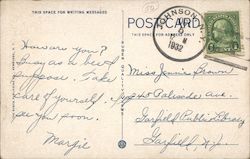 THIS SPACE FOR WRITING MESSAGES
POST CARD
THIS SPACE FOR ADDRESS ONLY
JOHNSON
1932
How are you?
Busy as a bee I
suppose. Take
care of yourself.
See you soon.
Margie
Miss Jennie Brown
Palisade Ave.
Garfield Public Library
Garfield, N.J.